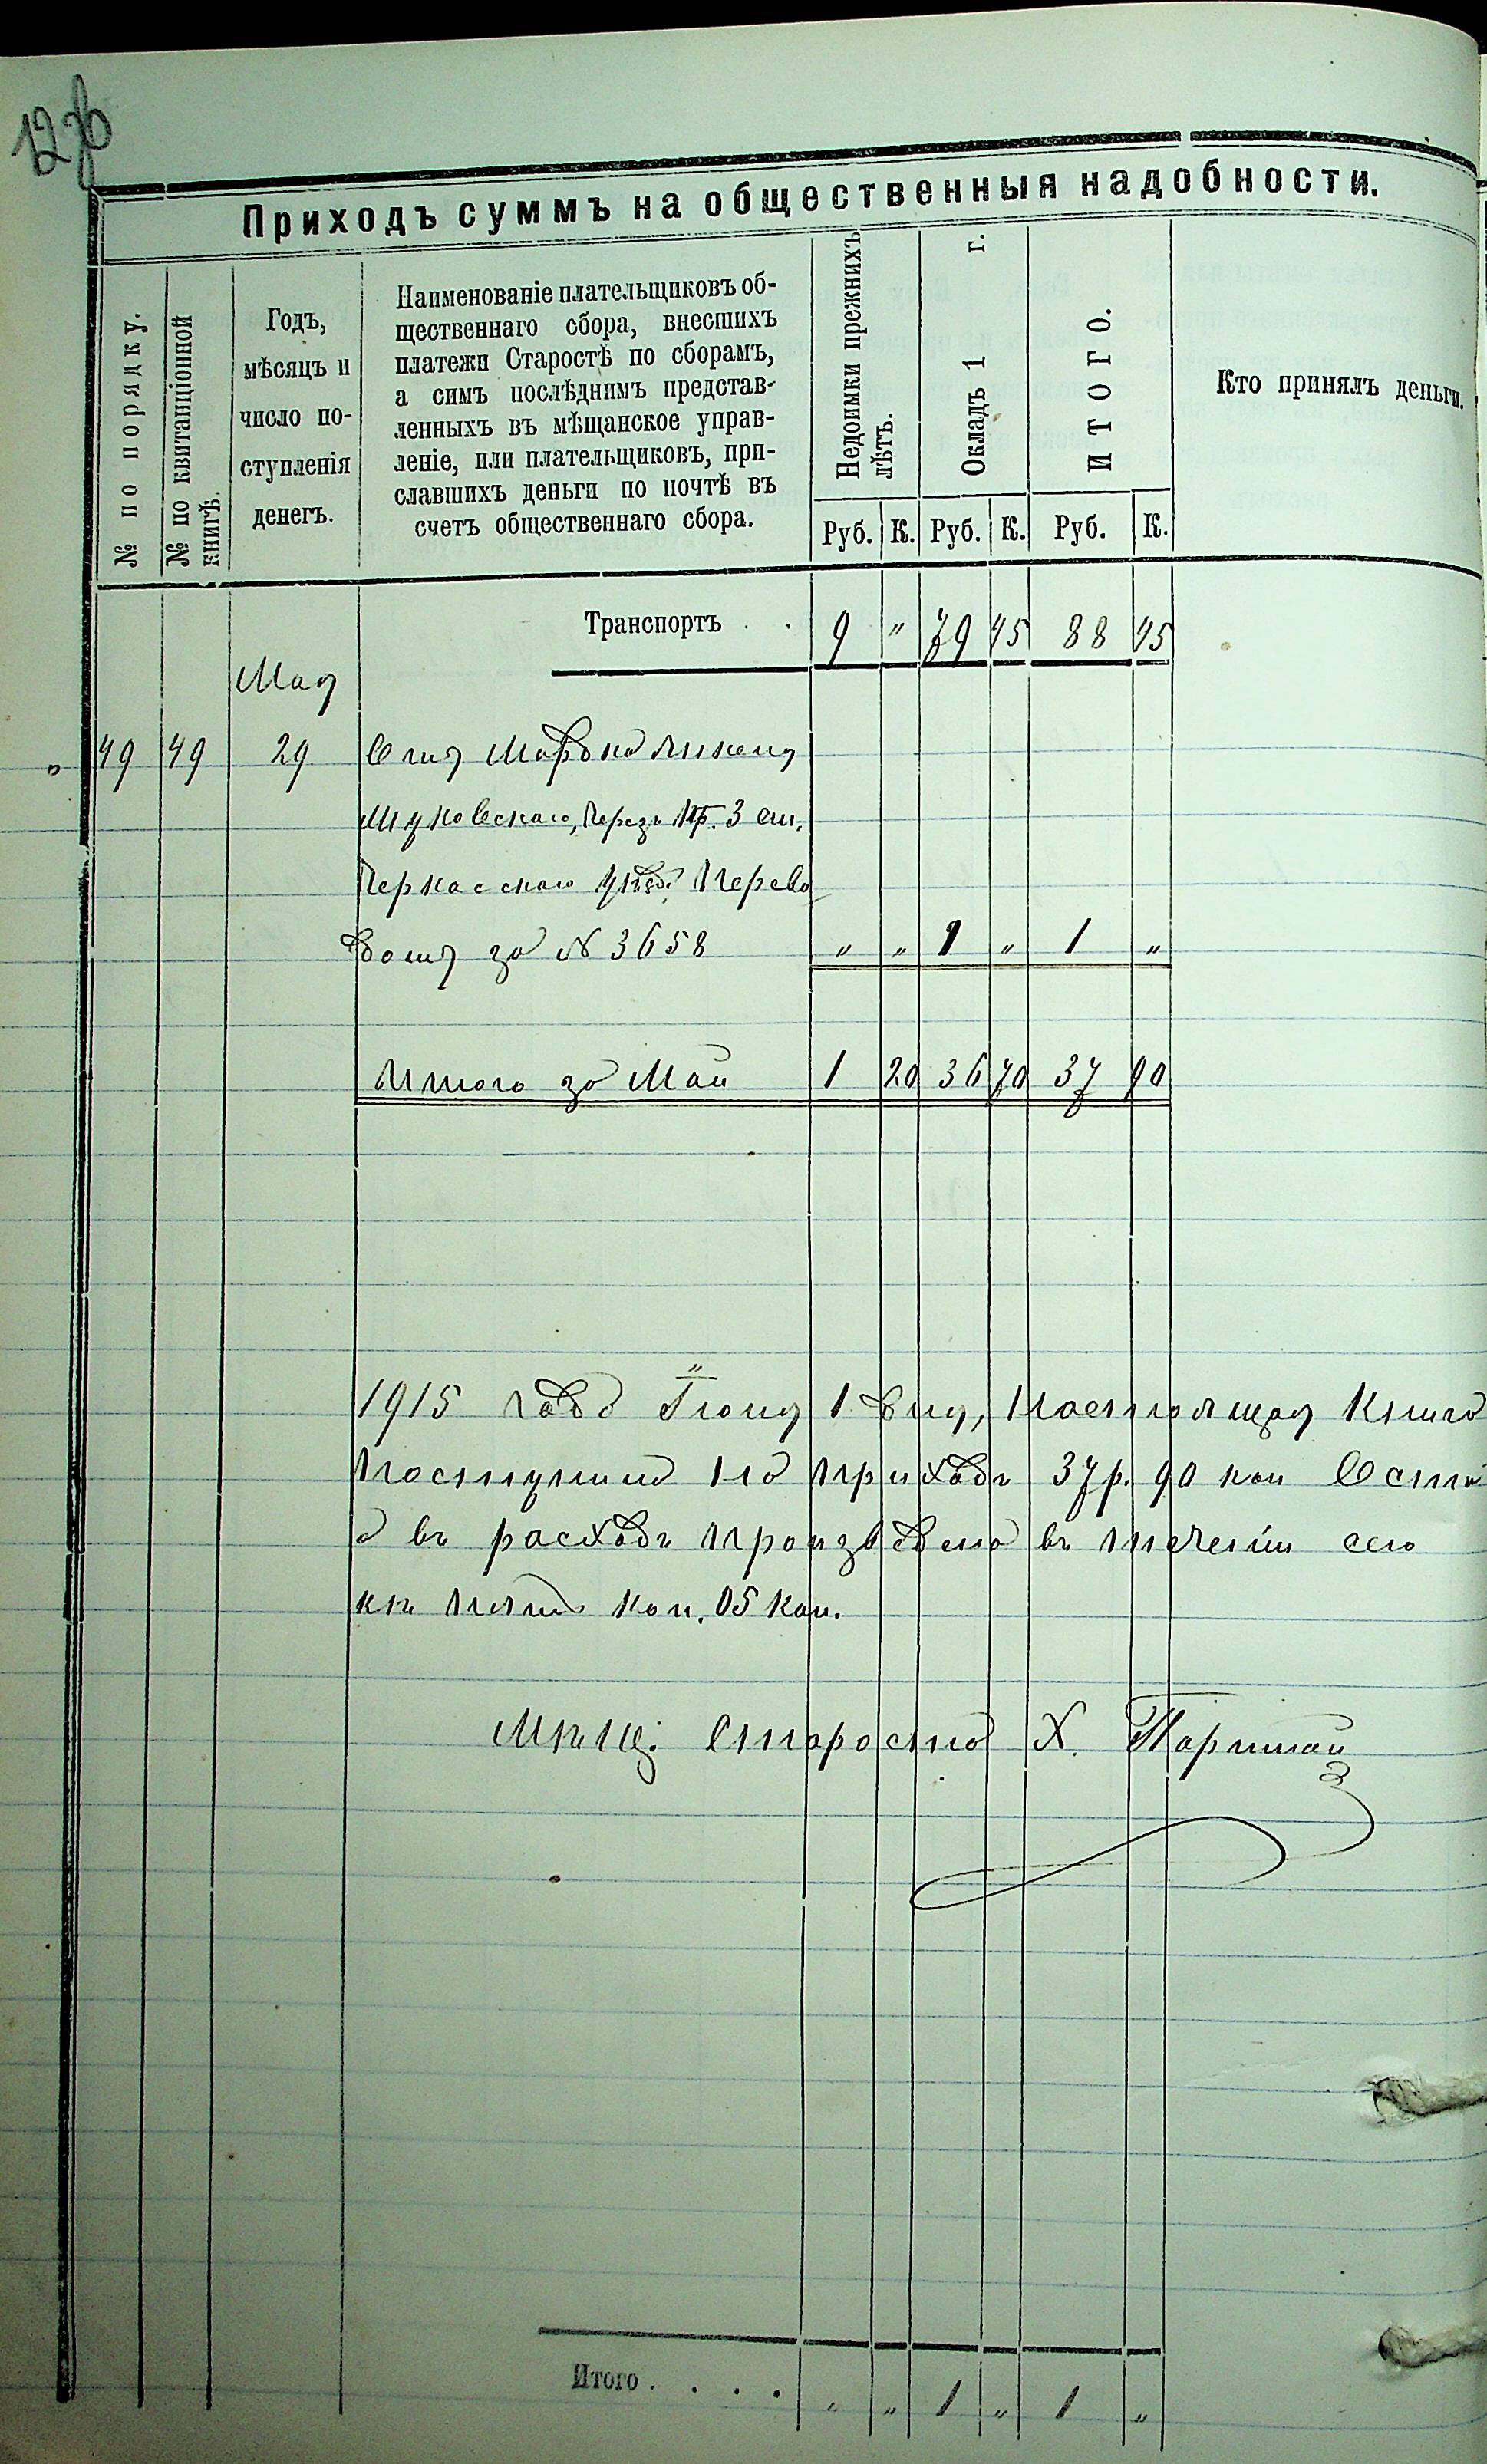 Приходъ суммъ на общественныя надобности.
№ по порядку.
№ по квитанціонной книгѣ.
Годъ,
мѣсяцъ и
число по-
ступленія
денегъ.
Наименованіе плательщиковъ об-
щественнаго сбора, внесшихъ
платежи Старостѣ по сборамъ,
а симъ послѣднимъ представ-
ленныхъ въ мѣщанское управ-
леніе, или плательщиковъ, при-
славшихъ деньги по почтѣ въ
счетъ общественнаго сбора.
Недоимки прежнихъ
лѣтъ.
Окладъ 1 г.
ИТОГО.
Кто принялъ деньги.
Руб. К. Руб. К. Руб. К.
Транспортъ . . 9 " 79 45 88 45
Мая
49 49 29 Отъ
3
Черкасскаго Перево
домъ за № 3658 " " 1 " 1 "
Итого за Май 1 20 36 70 37 90
1915 года Іюня 1 дня, Настоящая Книга
на приходъ 37 р. 90 коп
а въ расходъ произведена въ теченіи сего
коп. 05 коп.
Мѣщ. Староста Х.
Итого . . . . " " 1 " 1 "